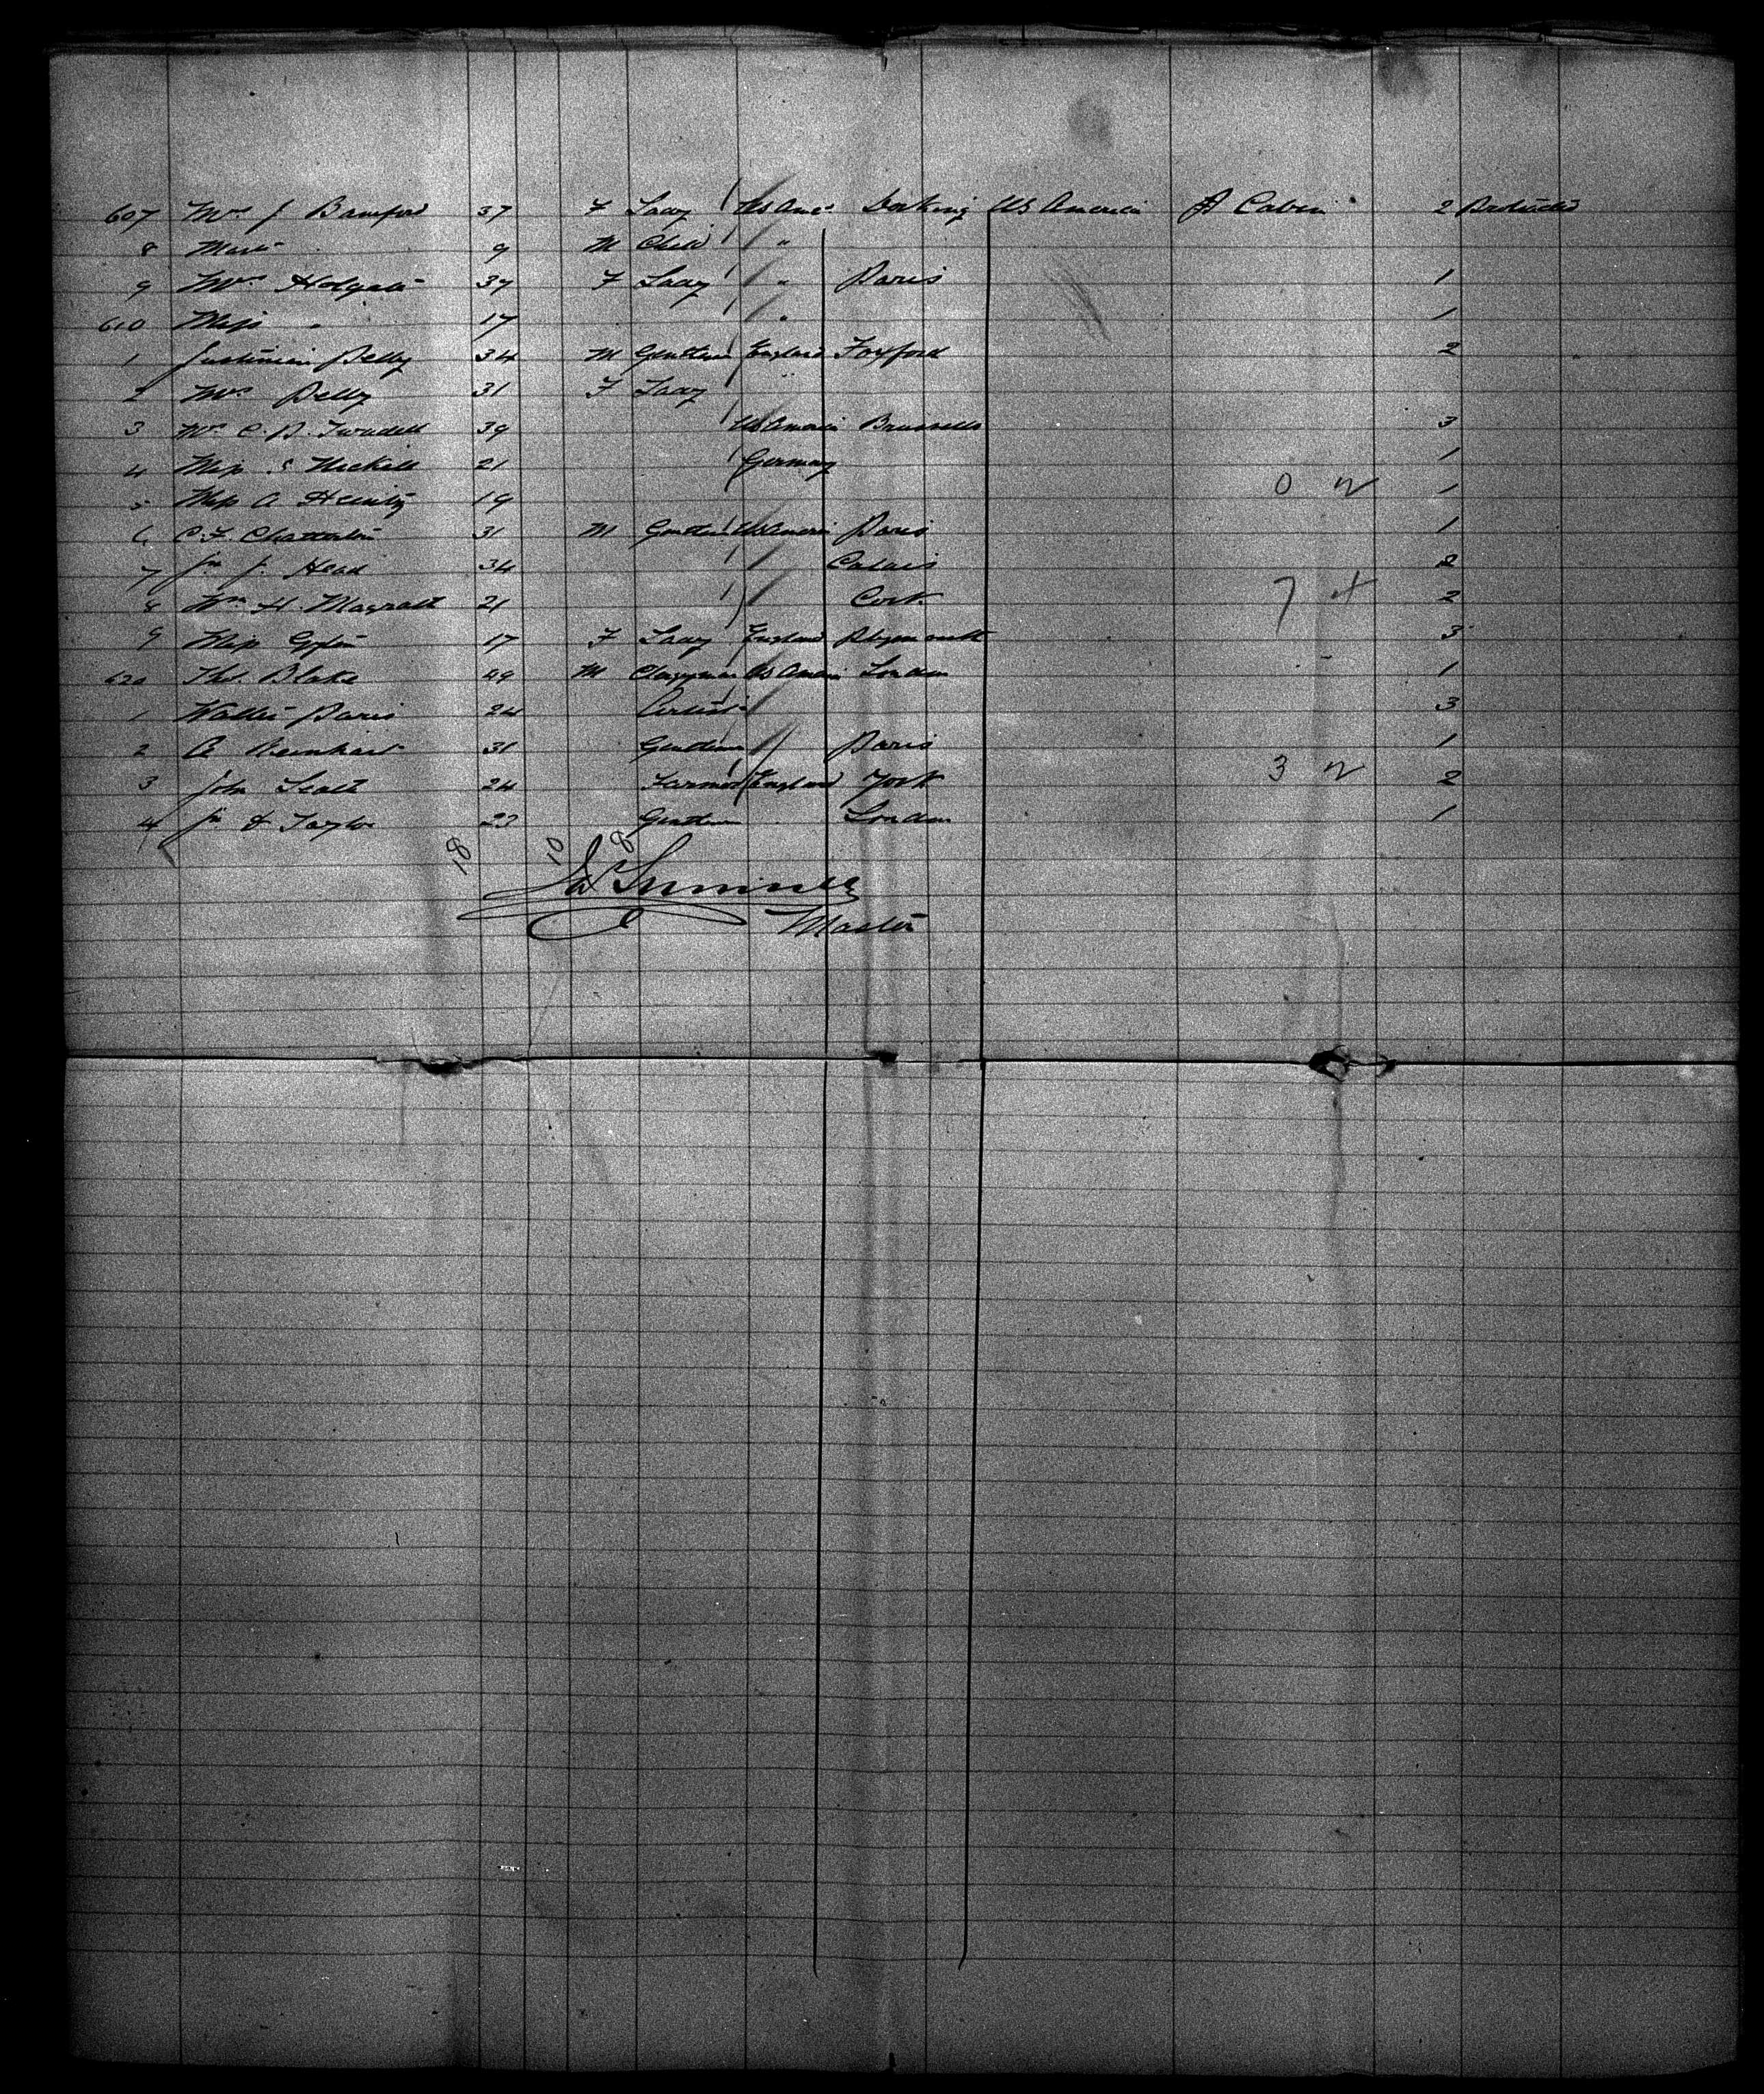 607 Mrs J Bamford 37 F Lady US Ame Dorking US America Cabin 2 Protracted
8 Mast 9 M Child "
9 Mrs Holgate 37 F Lady " Paris 1
610 Miss " 17 " 1
1 Justinian Pelly 34 M Gentlem England Foxford 2
2 Mrs Pelly 31 F Lady "
3 Mrs C. D. Twadell 39 US America Brussells 3
4 Miss S 21 Germany 1
5 Miss A Heintz 19 0 1
6 C. F. Chatterton 31 M Gentlem US Americ Paris 1
7 Jn J. Head 34 Calais 2
8 Wm H. Magratt 21 Cork 7 2
9 Miss 17 F Lady England Plymouth 3
620 Thos. Blake 49 M Clergyman US Americ London 1
1 Walter Paris 24 Artist 3
2 C Reinhart 31 Gentlem Paris 1
3 John Scott 24 Farmer England York 3 2
4 Jn Taylor 23 Gentlem London 1
18 10 8
Master